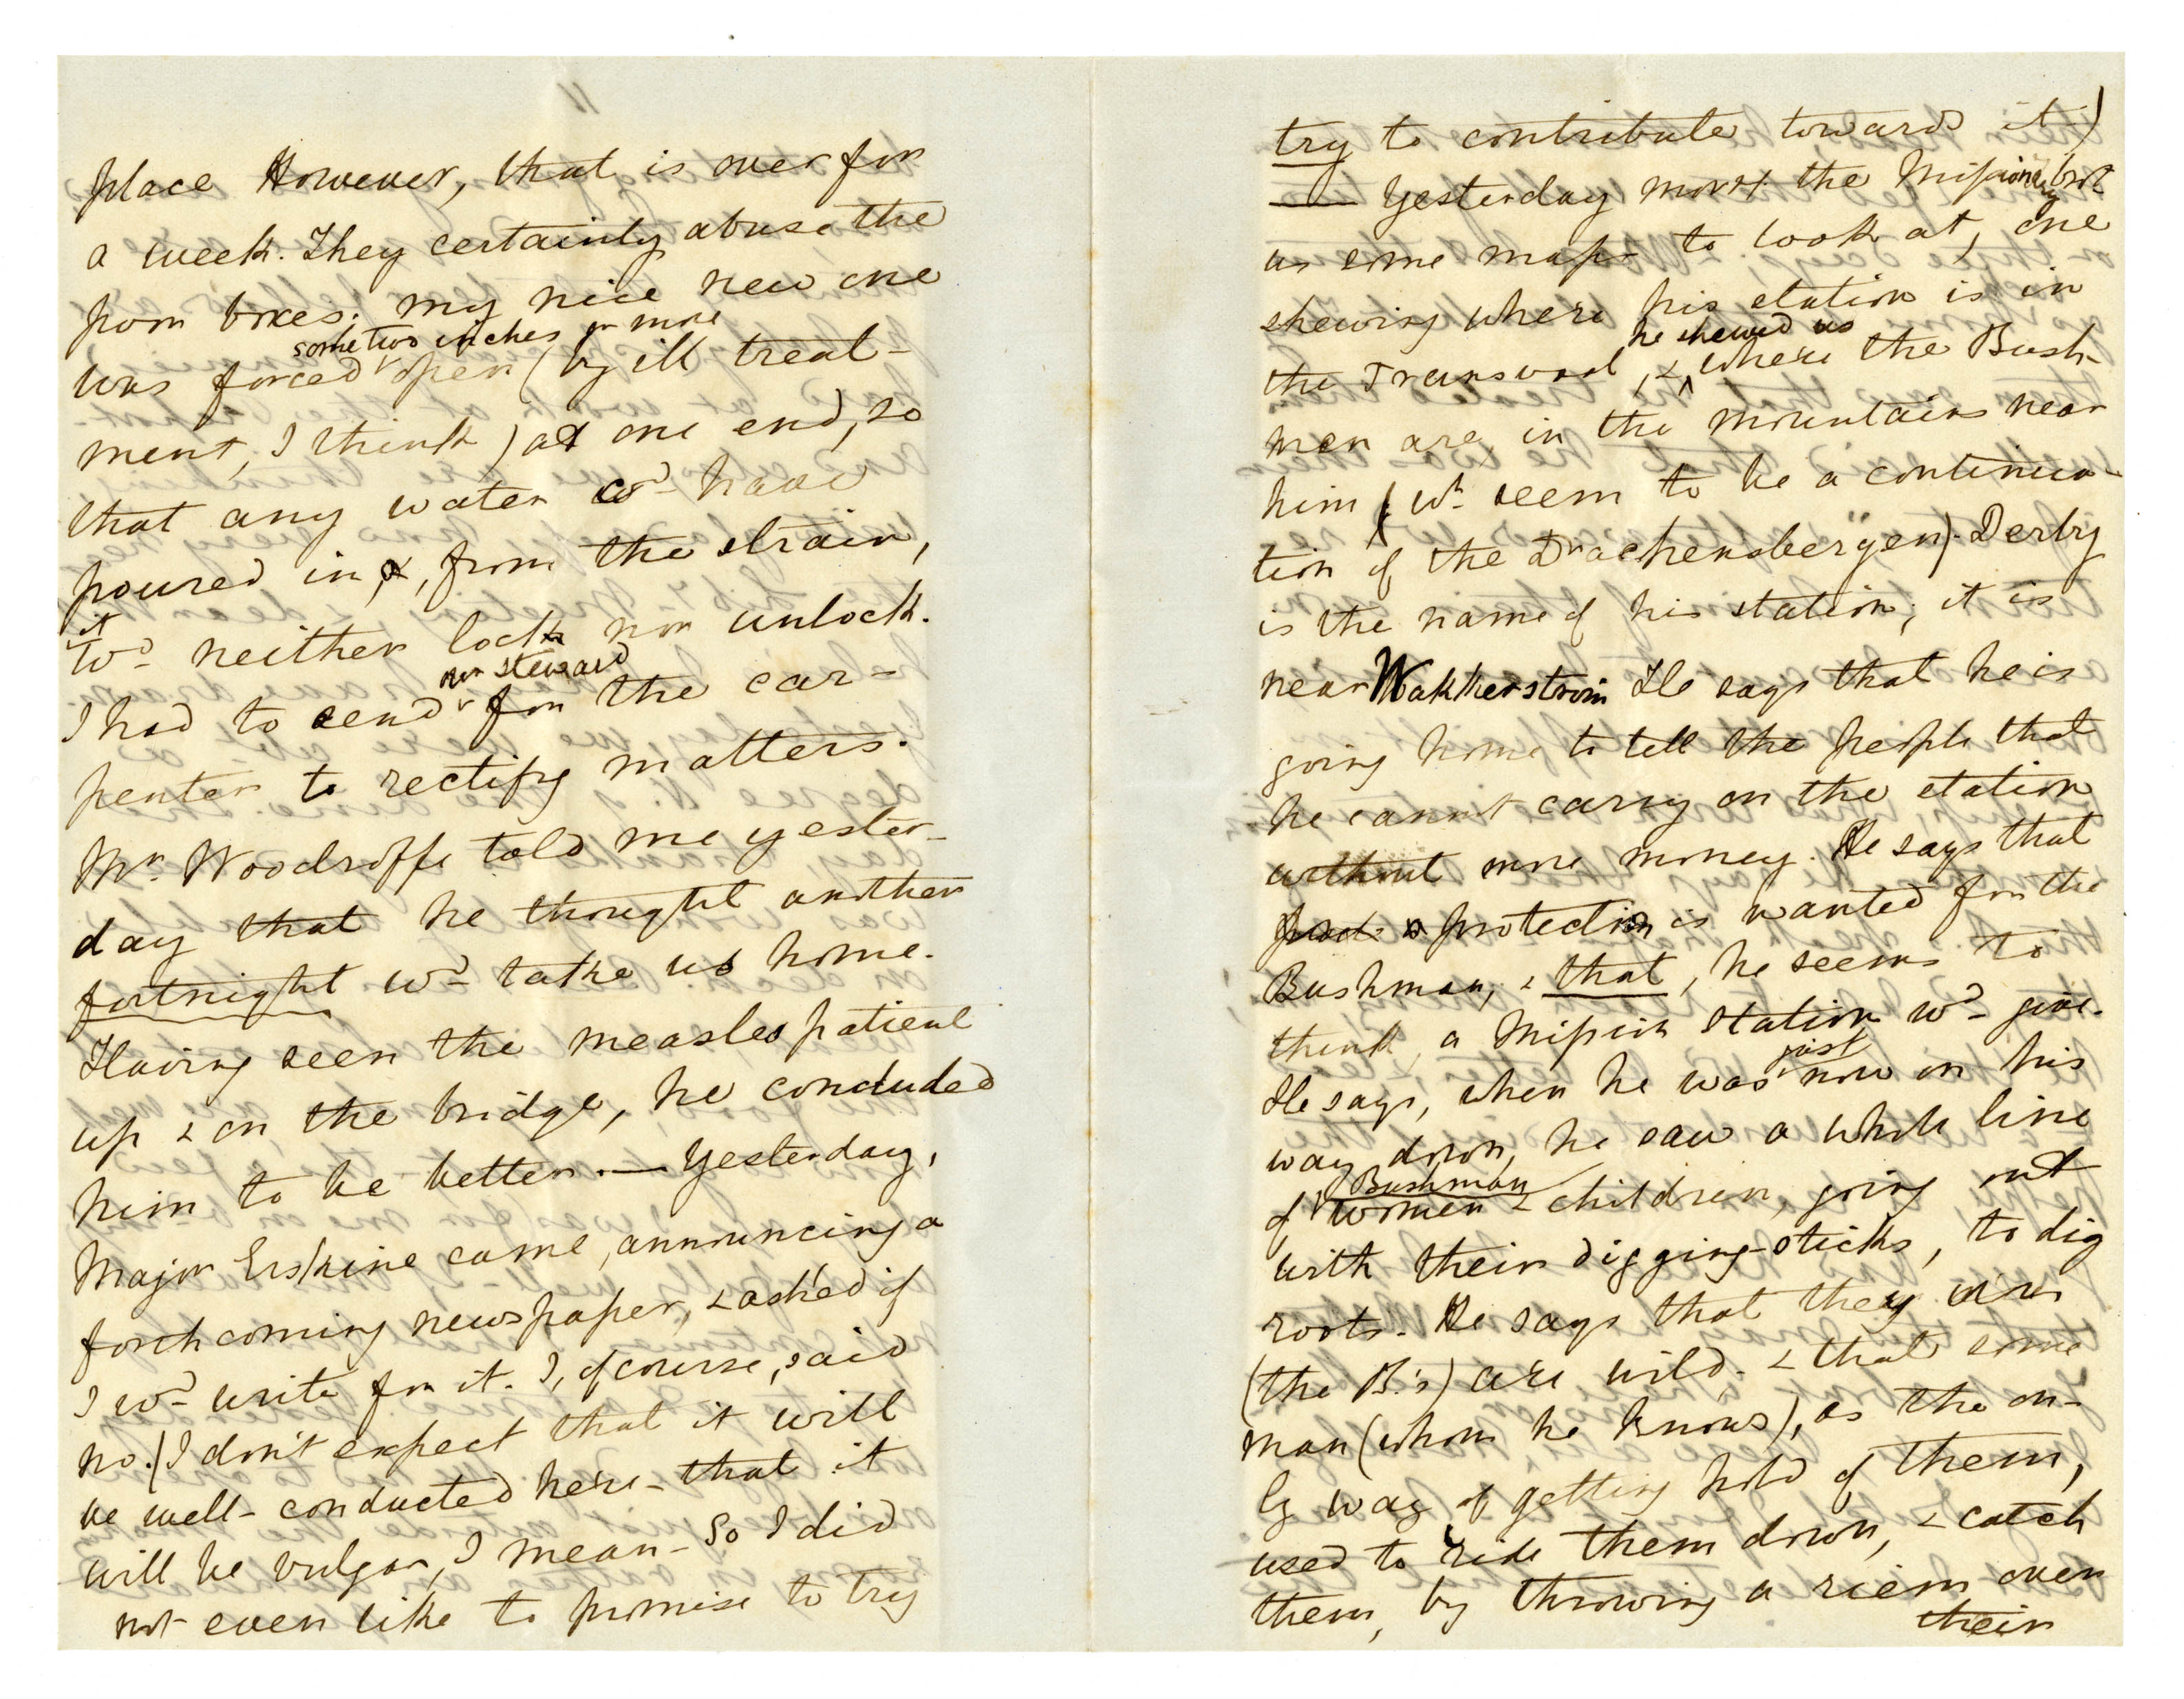 place However, that is over for
a week. They certainly abuse the
poor boxes; my nice new one
some two inches or more
was forced open (by ill treat-
ment, I think) at one end, so
that any water cd. have
poured in, &, from the strain,
it
wd. neither lock nor unlock.
our steward
I had to send for the car-
penter to rectify matters.
Mr. Woodroffe told me yester-
day that he thought another
fortnight wd. take us home.
Having seen the measles patient
up & on the bridge, he concluded
him to be better. — Yesterday,
Major Erskine came, announcing a
forthcoming newspaper, & asked if
I wd. write for it. I, of course, said
no. (I don't expect that it will
be well-conducted here - that it
will be vulgar, I mean - So I did
not even like to promise to try
try to contribute towards it)
— Yesterday morng. the Missionary brot.
us some maps to look at, one
shewing where his station is in
he shewed us
the Transvaal, & where the Bush-
men are, in the mountains near
him (wh. seem to be a continua-
tion of the Drachensbergen). Derby
is the name of his station; it is
near Wakkerstrom He says that he is
going home to tell the people that
he cannot carry on the station
without more money. He says that
protection is wanted for the
Bushman, & that, he seems to
think, a Mission station wd. give.
just
He says, when he was now on his
way down, he saw a whole line
Bushman
of women & children, going out
with their digging-sticks, to dig
roots. He says that they are
(the B.'s) are wild. & that some
man (whom he knows), as the on-
ly way of getting hold of them,
used to ride them down, & catch
them, by throwing a riem over
their